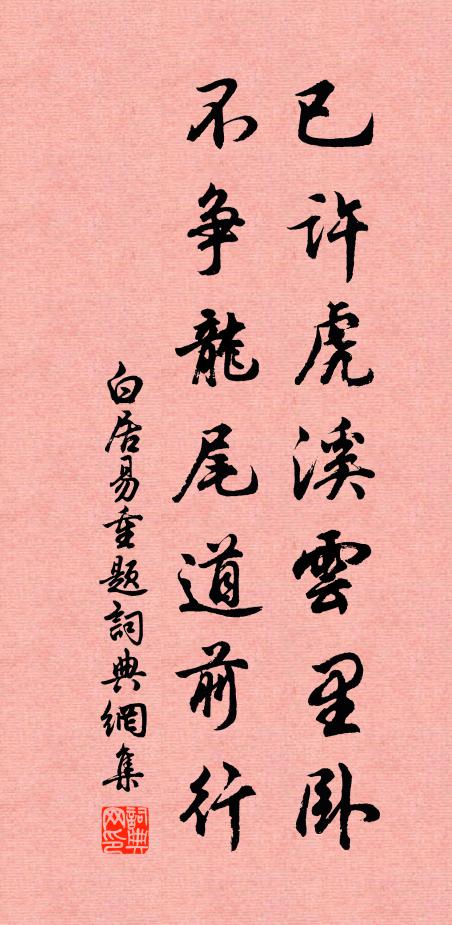 已許虎溪雲里臥
不爭龍尾道前行
白居易重題詞典網集
詞典网印